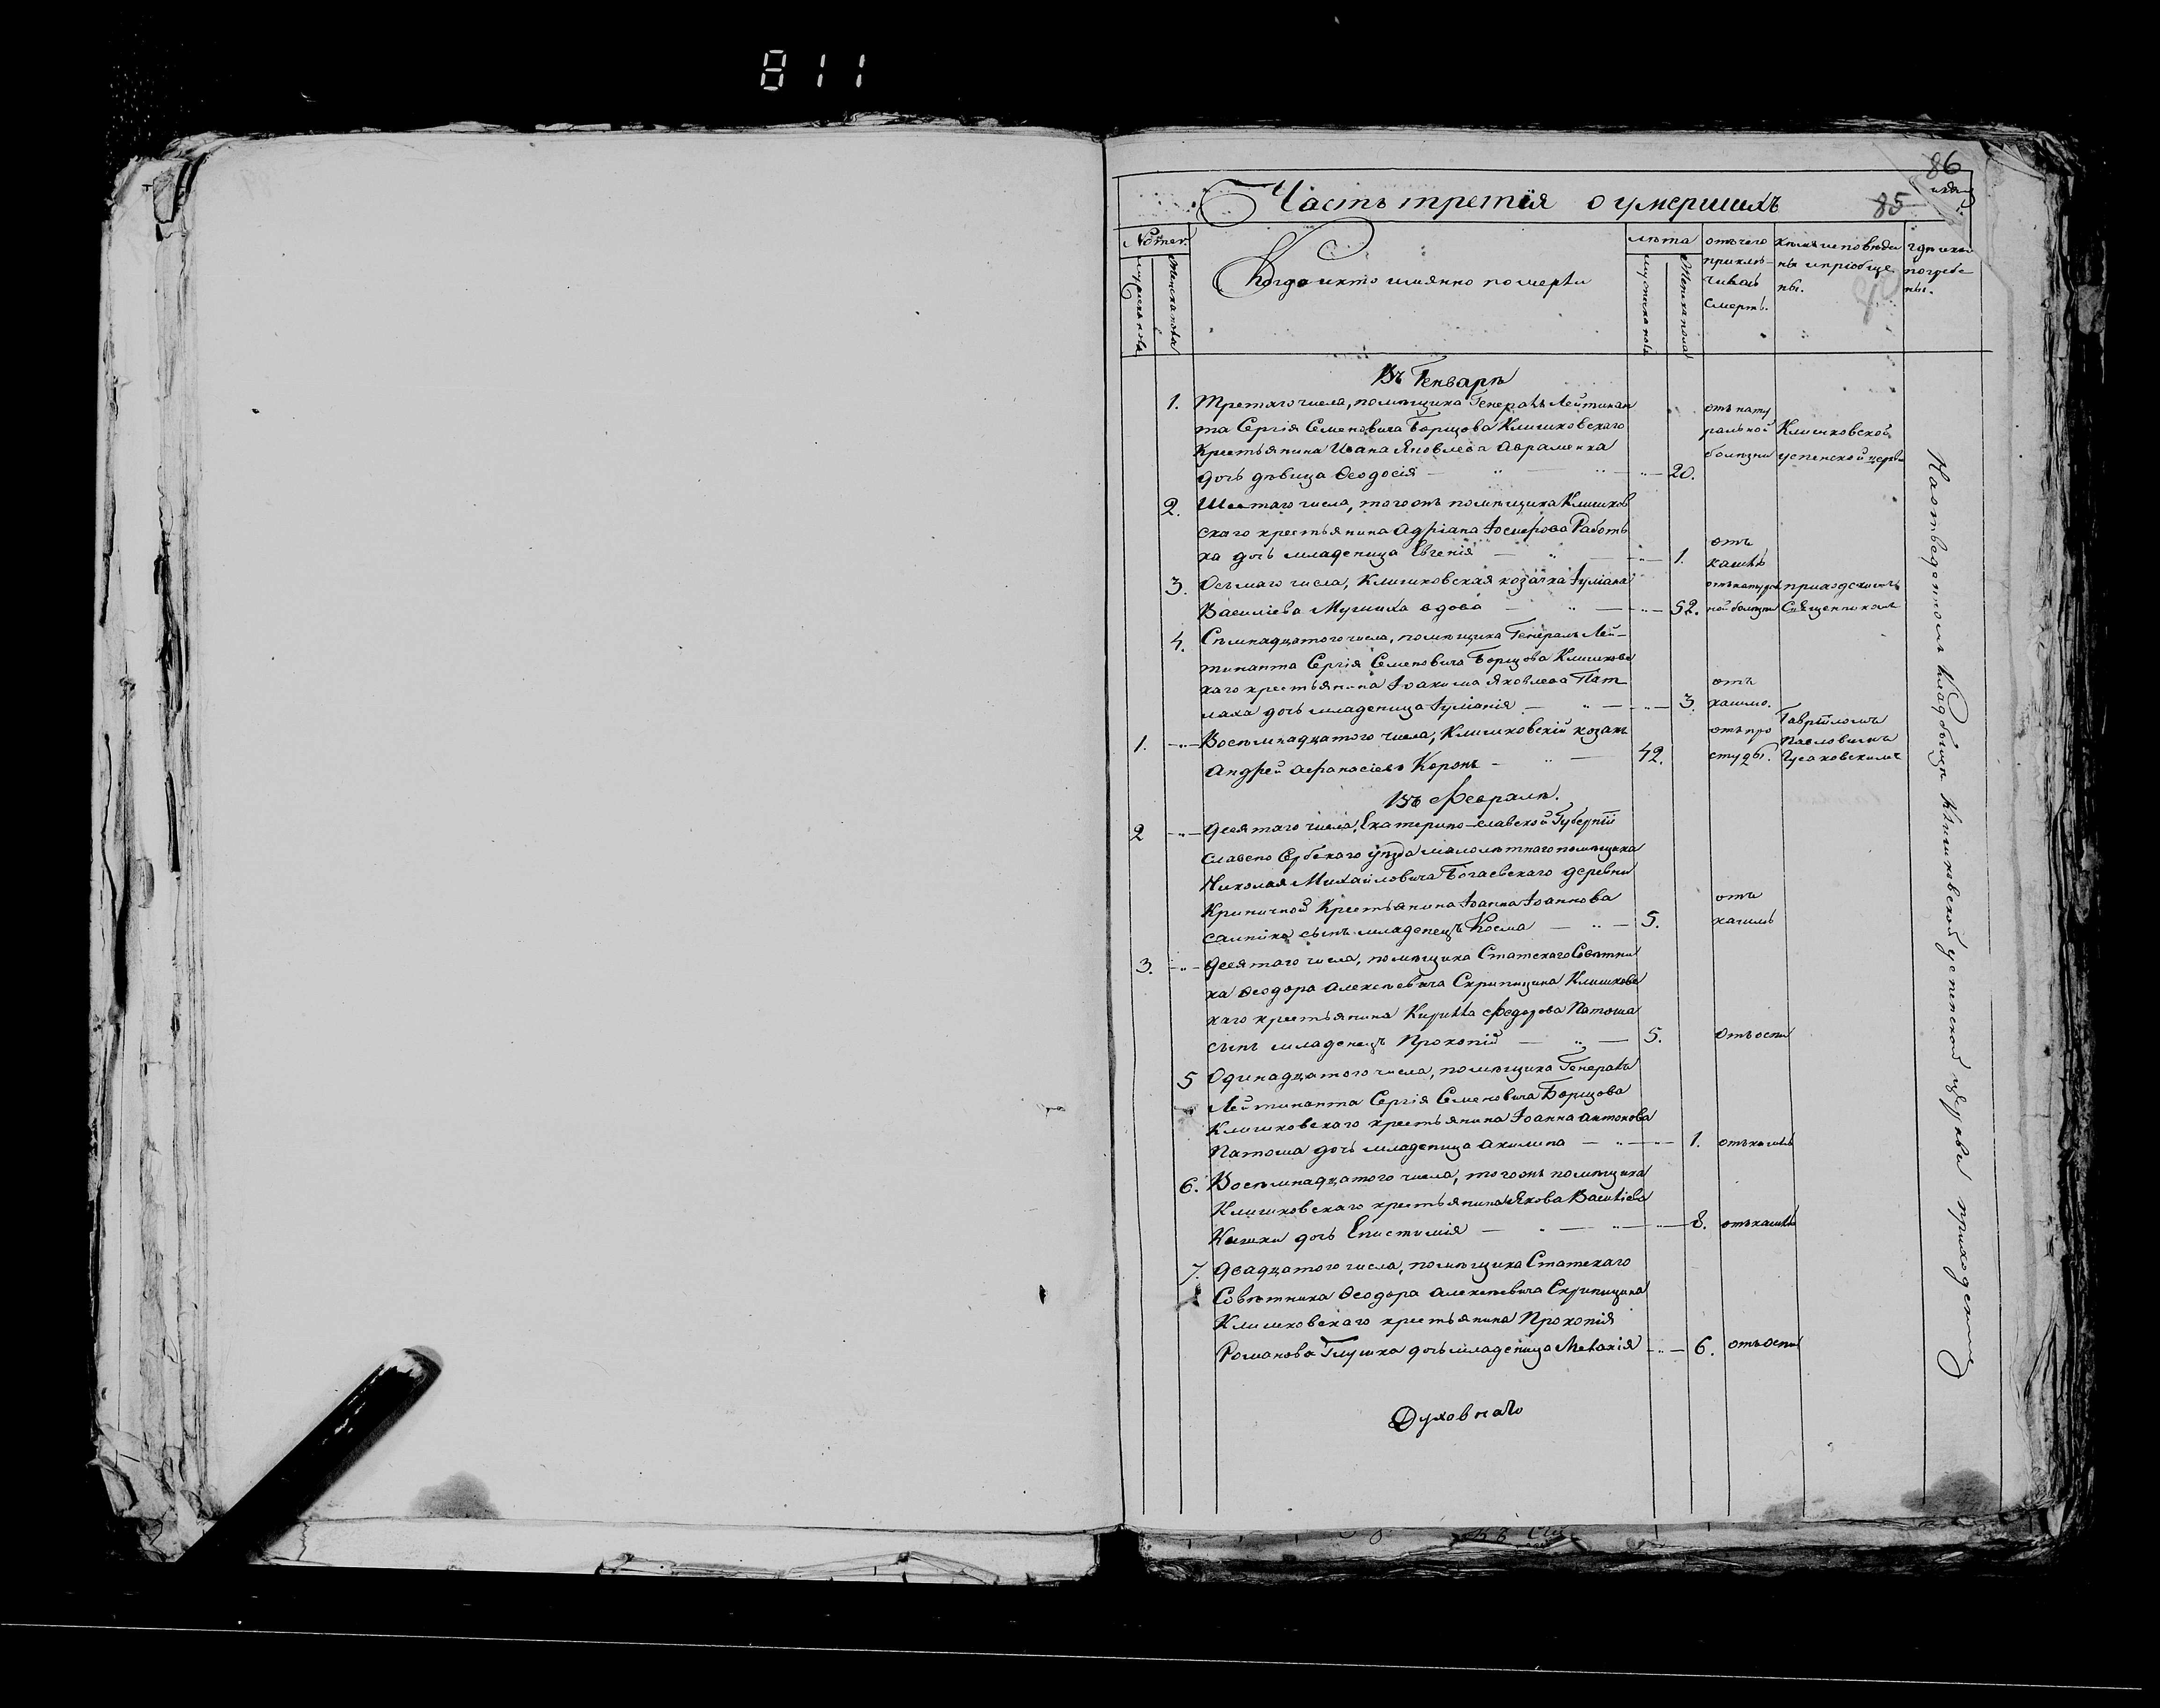 811
86
85
Часть третія о умершихъ
Номер.
мужеска пола
Женска пола
Когда и кто имянно померли
лѣта
мужеска пола
Женска пола
отъ чего
приклю-
чилась
смерть.
кѣмъ исповѣда
ны и пріобще
ны.
гдѣ и кѣм
погребе
ны.
Въ Генварѣ
1. Третяго числа, помѣщика Генералъ Лейтинан
та Сергія Семеновича Борщова Клишковскаго
крестьянина Ивана Яковлева Авраменка
дочь дѣвица Ѳеодосія 20.
отъ нату
ральной
болѣзни
Клишковской
успенской церкви
2. Шестаго числа, того жъ помѣщика Клишков
скаго крестьянина Адріана Іосифова Работь
ка дочь младеница Евгенія 1.
отъ
кашля
3. Осьмаго числа, Клишковская козачка Іуліана
Василіева вдова 52.
отъ натурал
ной болѣзни
приходскимъ
Священикомъ
4. Сѣмнадцатого числа, помѣщика Генералъ Лей-
тинанта Сергія Семеновича Борщова Клишковс
каго крестьянина Іоакима Яковлева Пат
лаха дочь младеница Іуліанія 3.
отъ
кашлю.
Гавріиломъ
1. Восѣмнадцатого числа, Клишковскій козакъ
Андрей Афанасіевъ Коропъ 42.
отъ про
студы.
Павловымъ
Гусаковскимъ
Въ Февралѣ.
2 Десятаго числа, Екатерино-славской Губерніи
Славено Сербскаго уѣзда малолѣтнаго помѣщика
Николая Михайловича Богаевскаго деревни
Криничной Крестьянина Іоанна Іоаннова
сынъ младенецъ Косма 5.
отъ
кашля
3. Десятаго числа, помѣщика Статскаго Совѣтни
ка Ѳеодора Алексѣевича Скрипицина Клишковс
каго крестьянина Кирилла Федорова Патоша
сынъ младенецъ Прокопій 5.
Отъ оспи
5 Одинадцатого числа, помѣщика Генералъ
Лейтинанта Сергія Семеновича Борщова
Клишковскаго крестьянина Іоанна Антонова
Патоша дочь младеница Акилина 1.
отъ кашля
6. Восѣмнадцатого числа, того жъ помѣщика
Клишковскаго крестьянина Якова Василіева
Кишки дочь Епистимія 8.
отъ кашля
7. Двадцатого числа, помѣщика Статскаго
Совѣтника Ѳеодора Алексѣевича Скрипицина
Клишковскаго крестьянина Прокопія
Романова Глушка дочь младеница Меланія 6.
отъ оспи
На отведенномъ кладбищѣ Клишковской успенской церкви приходскимъ
Духовнаго